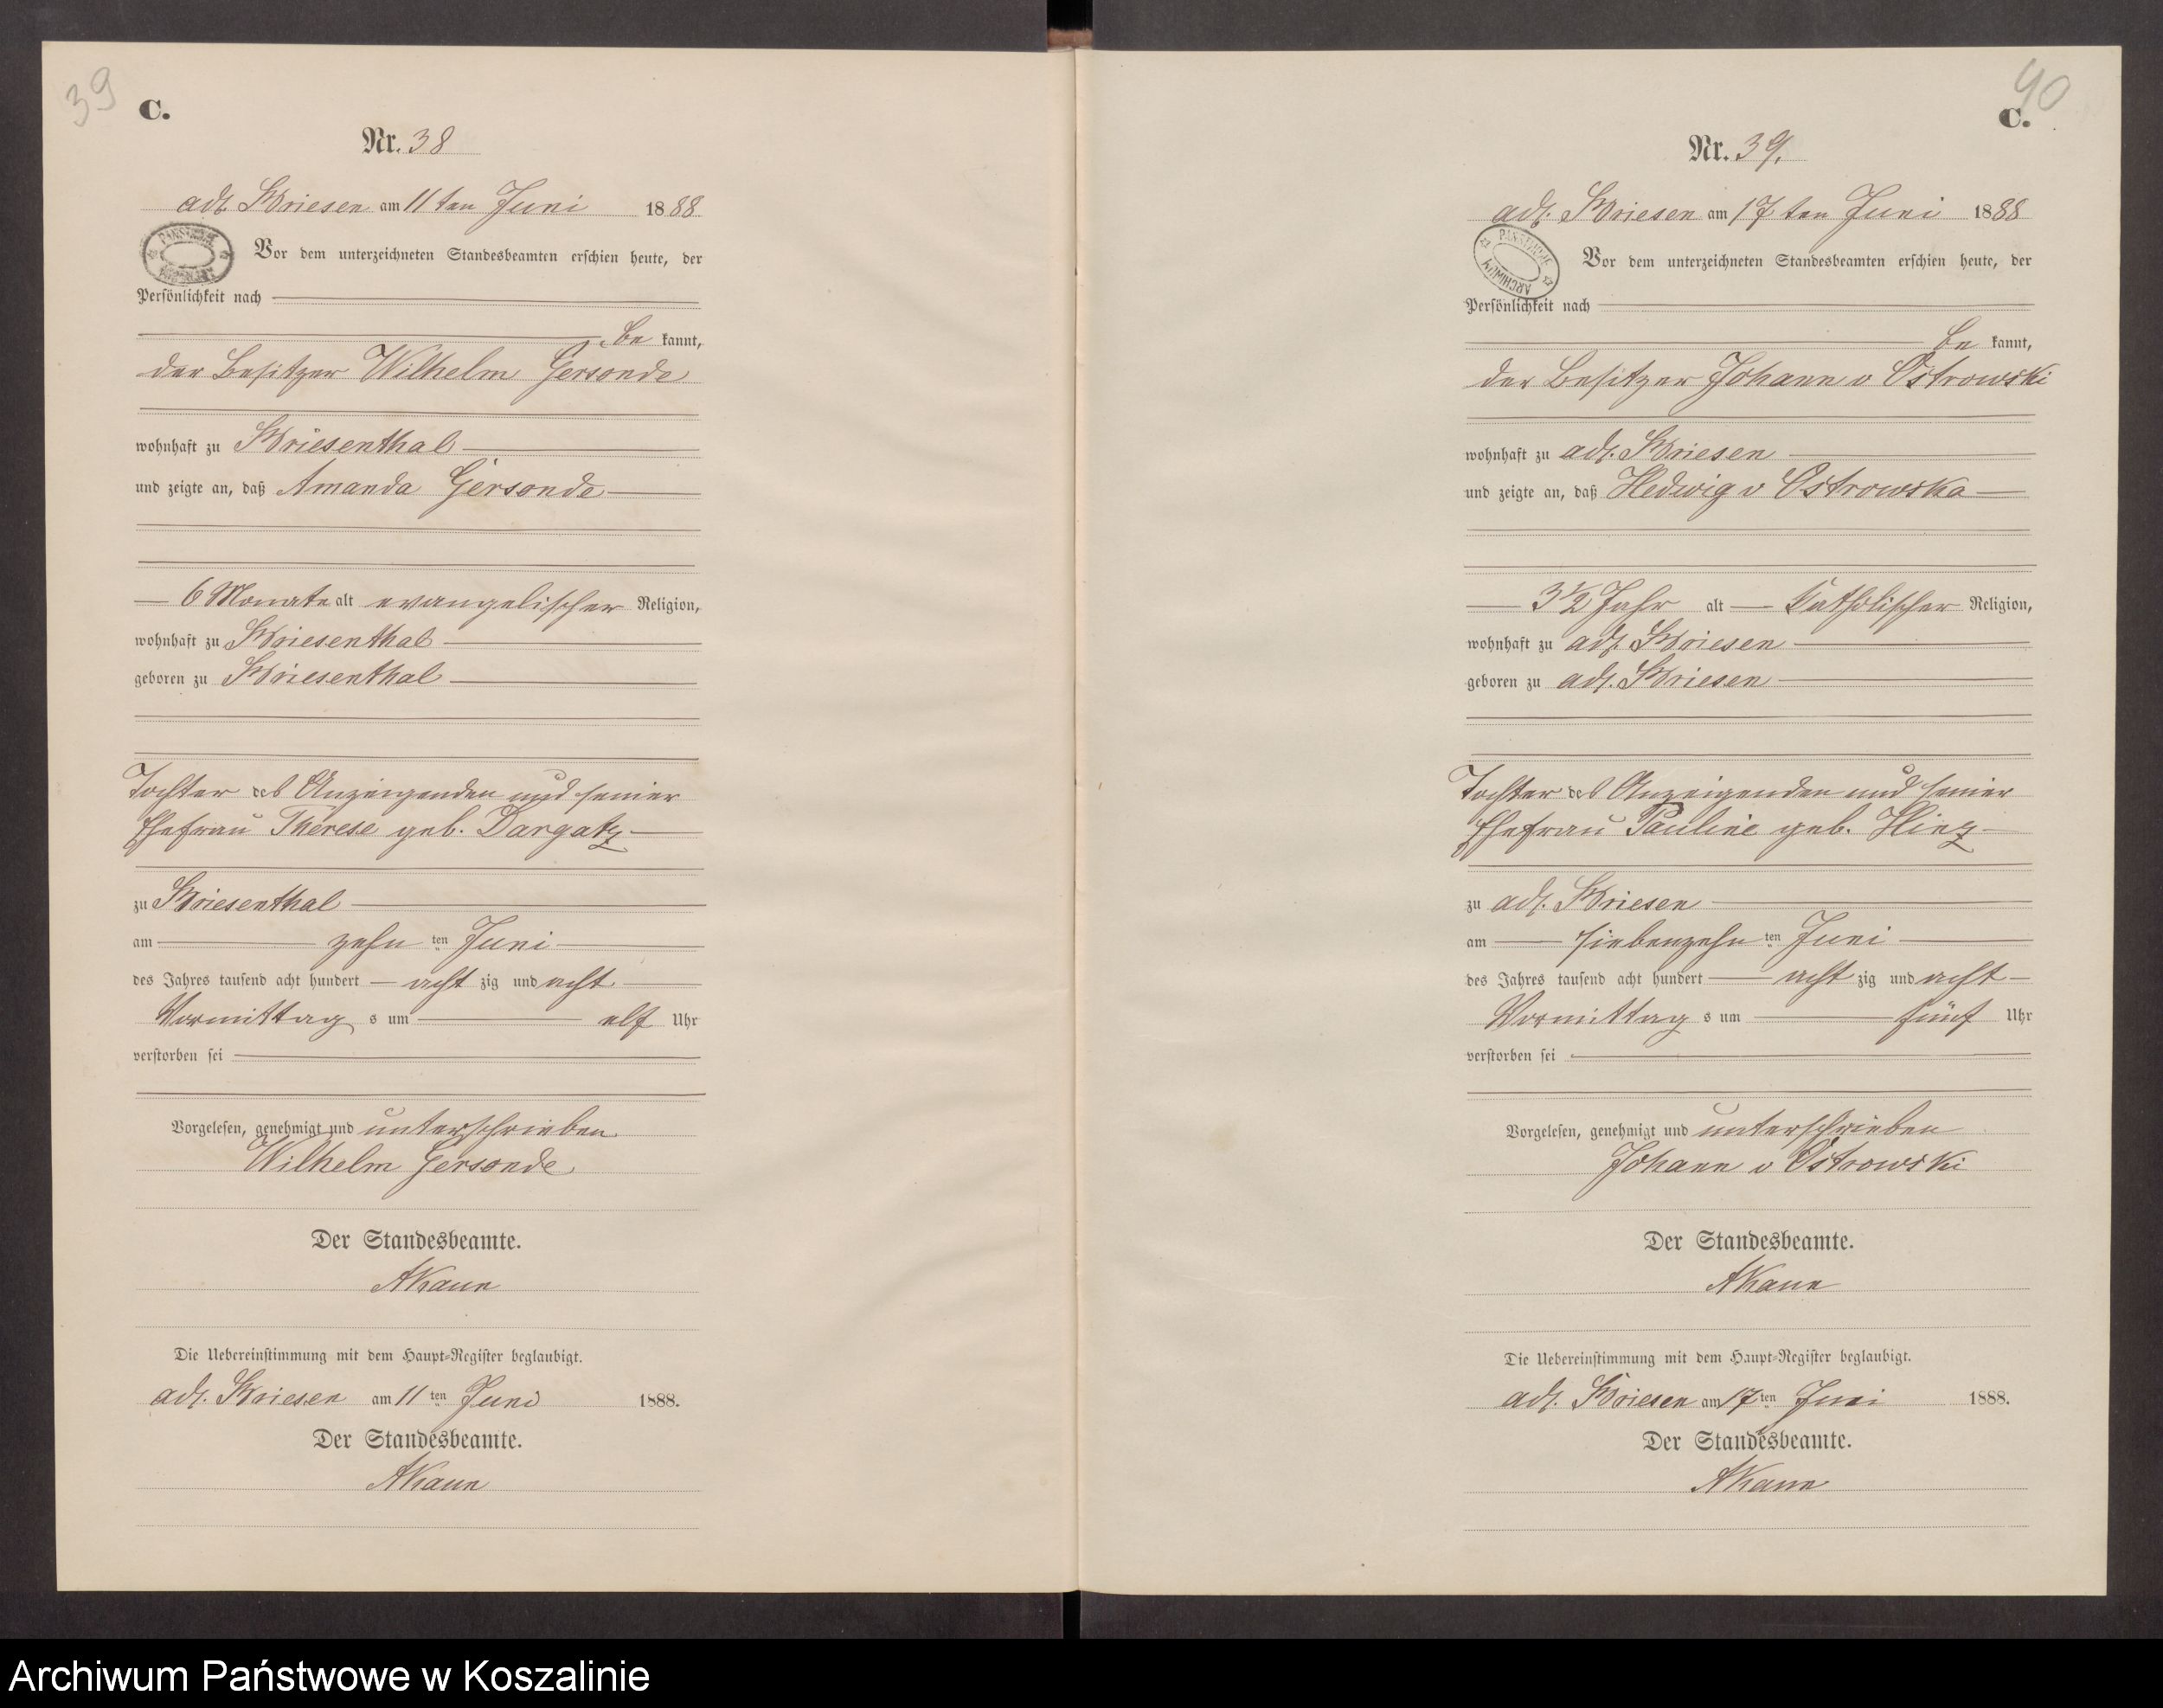 39
C.
Nr. 38
adl. Briesen am 11ten Juni 1888
Vor dem unterzeichneten Standesbeamten erschien heute, der
Persönlichkeit nach
be kannt,
der Besitzer Wilhelm Gersonde
wohnhaft zu Briesenthal
und zeigte an, daß Amanda Gersonde
6 Monate alt evangelischer Religion,
wohnhaft zu Briesenthal
geboren zu Briesenthal
Tochter des Anzeigenden und seiner
Ehefrau Therese geb. Dargatz
zu Briesenthal
am zehn ten Juni
des Jahres tausend acht hundert acht zig und acht
Vormittag s um elf Uhr
verstorben sei
Vorgelesen, genehmigt und unterschrieben
Wilhelm Gersonde
Der Standesbeamte.
Die Uebereinstimmung mit dem Haupt-Register beglaubigt.
adl. Briesen am 11 ten Juni 1888.
Der Standesbeamte.
40
C.
Nr. 39.
adl. Briesen am 17ten Juni 1888
PAŃSTWOWE ARCHIWUM
Vor dem unterzeichneten Standesbeamten erschien heute, der
Persönlichkeit nach
be kannt,
der Besitzer Johann v Ostrowski
wohnhaft zu adl. Briesen
und zeigte an, daß Hedwig v Ostrowska
3 1/2 Jahr alt katholischer Religion,
wohnhaft zu adl. Briesen
geboren zu adl. Briesen
Tochter des Anzeigenden und seiner
Ehefrau Pauline geb. Hinz
zu adl. Briesen
am siebenzehn ten Juni
des Jahres tausend acht hundert acht zig und acht
Vormittag s um fünf Uhr
verstorben sei
Vorgelesen, genehmigt und unterschrieben
Johann v Ostrowski
Der Standesbeamte.
Die Uebereinstimmung mit dem Haupt-Register beglaubigt.
adl. Briesen am 17 ten Juni 1888.
Der Standesbeamte.
Archiwum Państwowe w Koszalinie